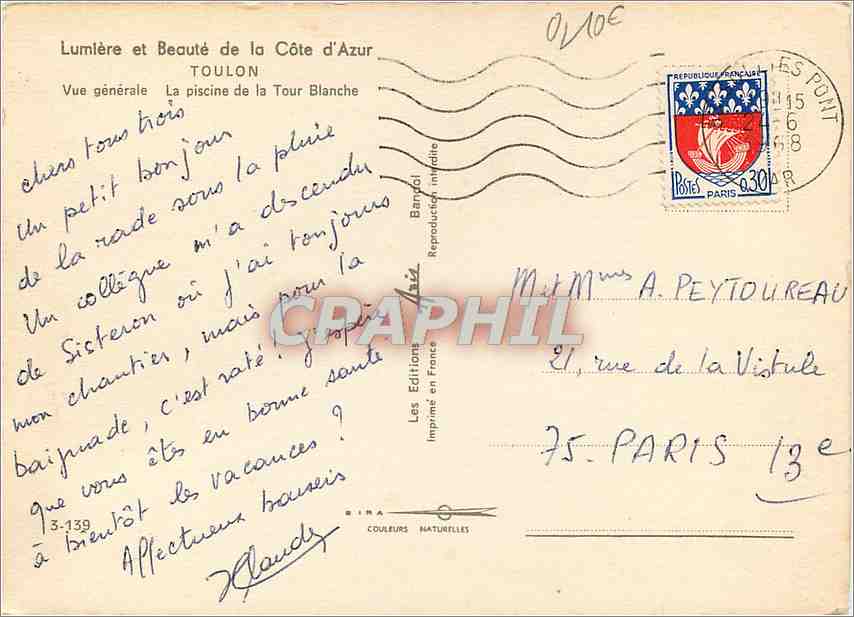 0,10€
Lumière et Beauté de la Côte d'Azur
TOULON
Vue générale La piscine de la Tour Blanche
chers tous trois
Un petit bonjour
de la rade sous la pluie
Un collègue m'a descendu
de Sisteron où j'ai toujours
mon chantier, mais pour la
baignade, c'est raté ! j'espère
que vous êtes en bonne santé
à bientôt les vacances ?
Affectueux baisers
Claude
3-139
Les Editions Aris Bandol
Imprimé en France Reproduction interdite
CPAPHIL
GIRA
COULEURS NATURELLES
REPUBLIQUE FRANÇAISE
POSTES
PARIS
0.30
ES PONT
15
24-6
1968
VAR
M et Mmes A. PEYTOUREAU
21, rue de la Vistule
75-PARIS 13e